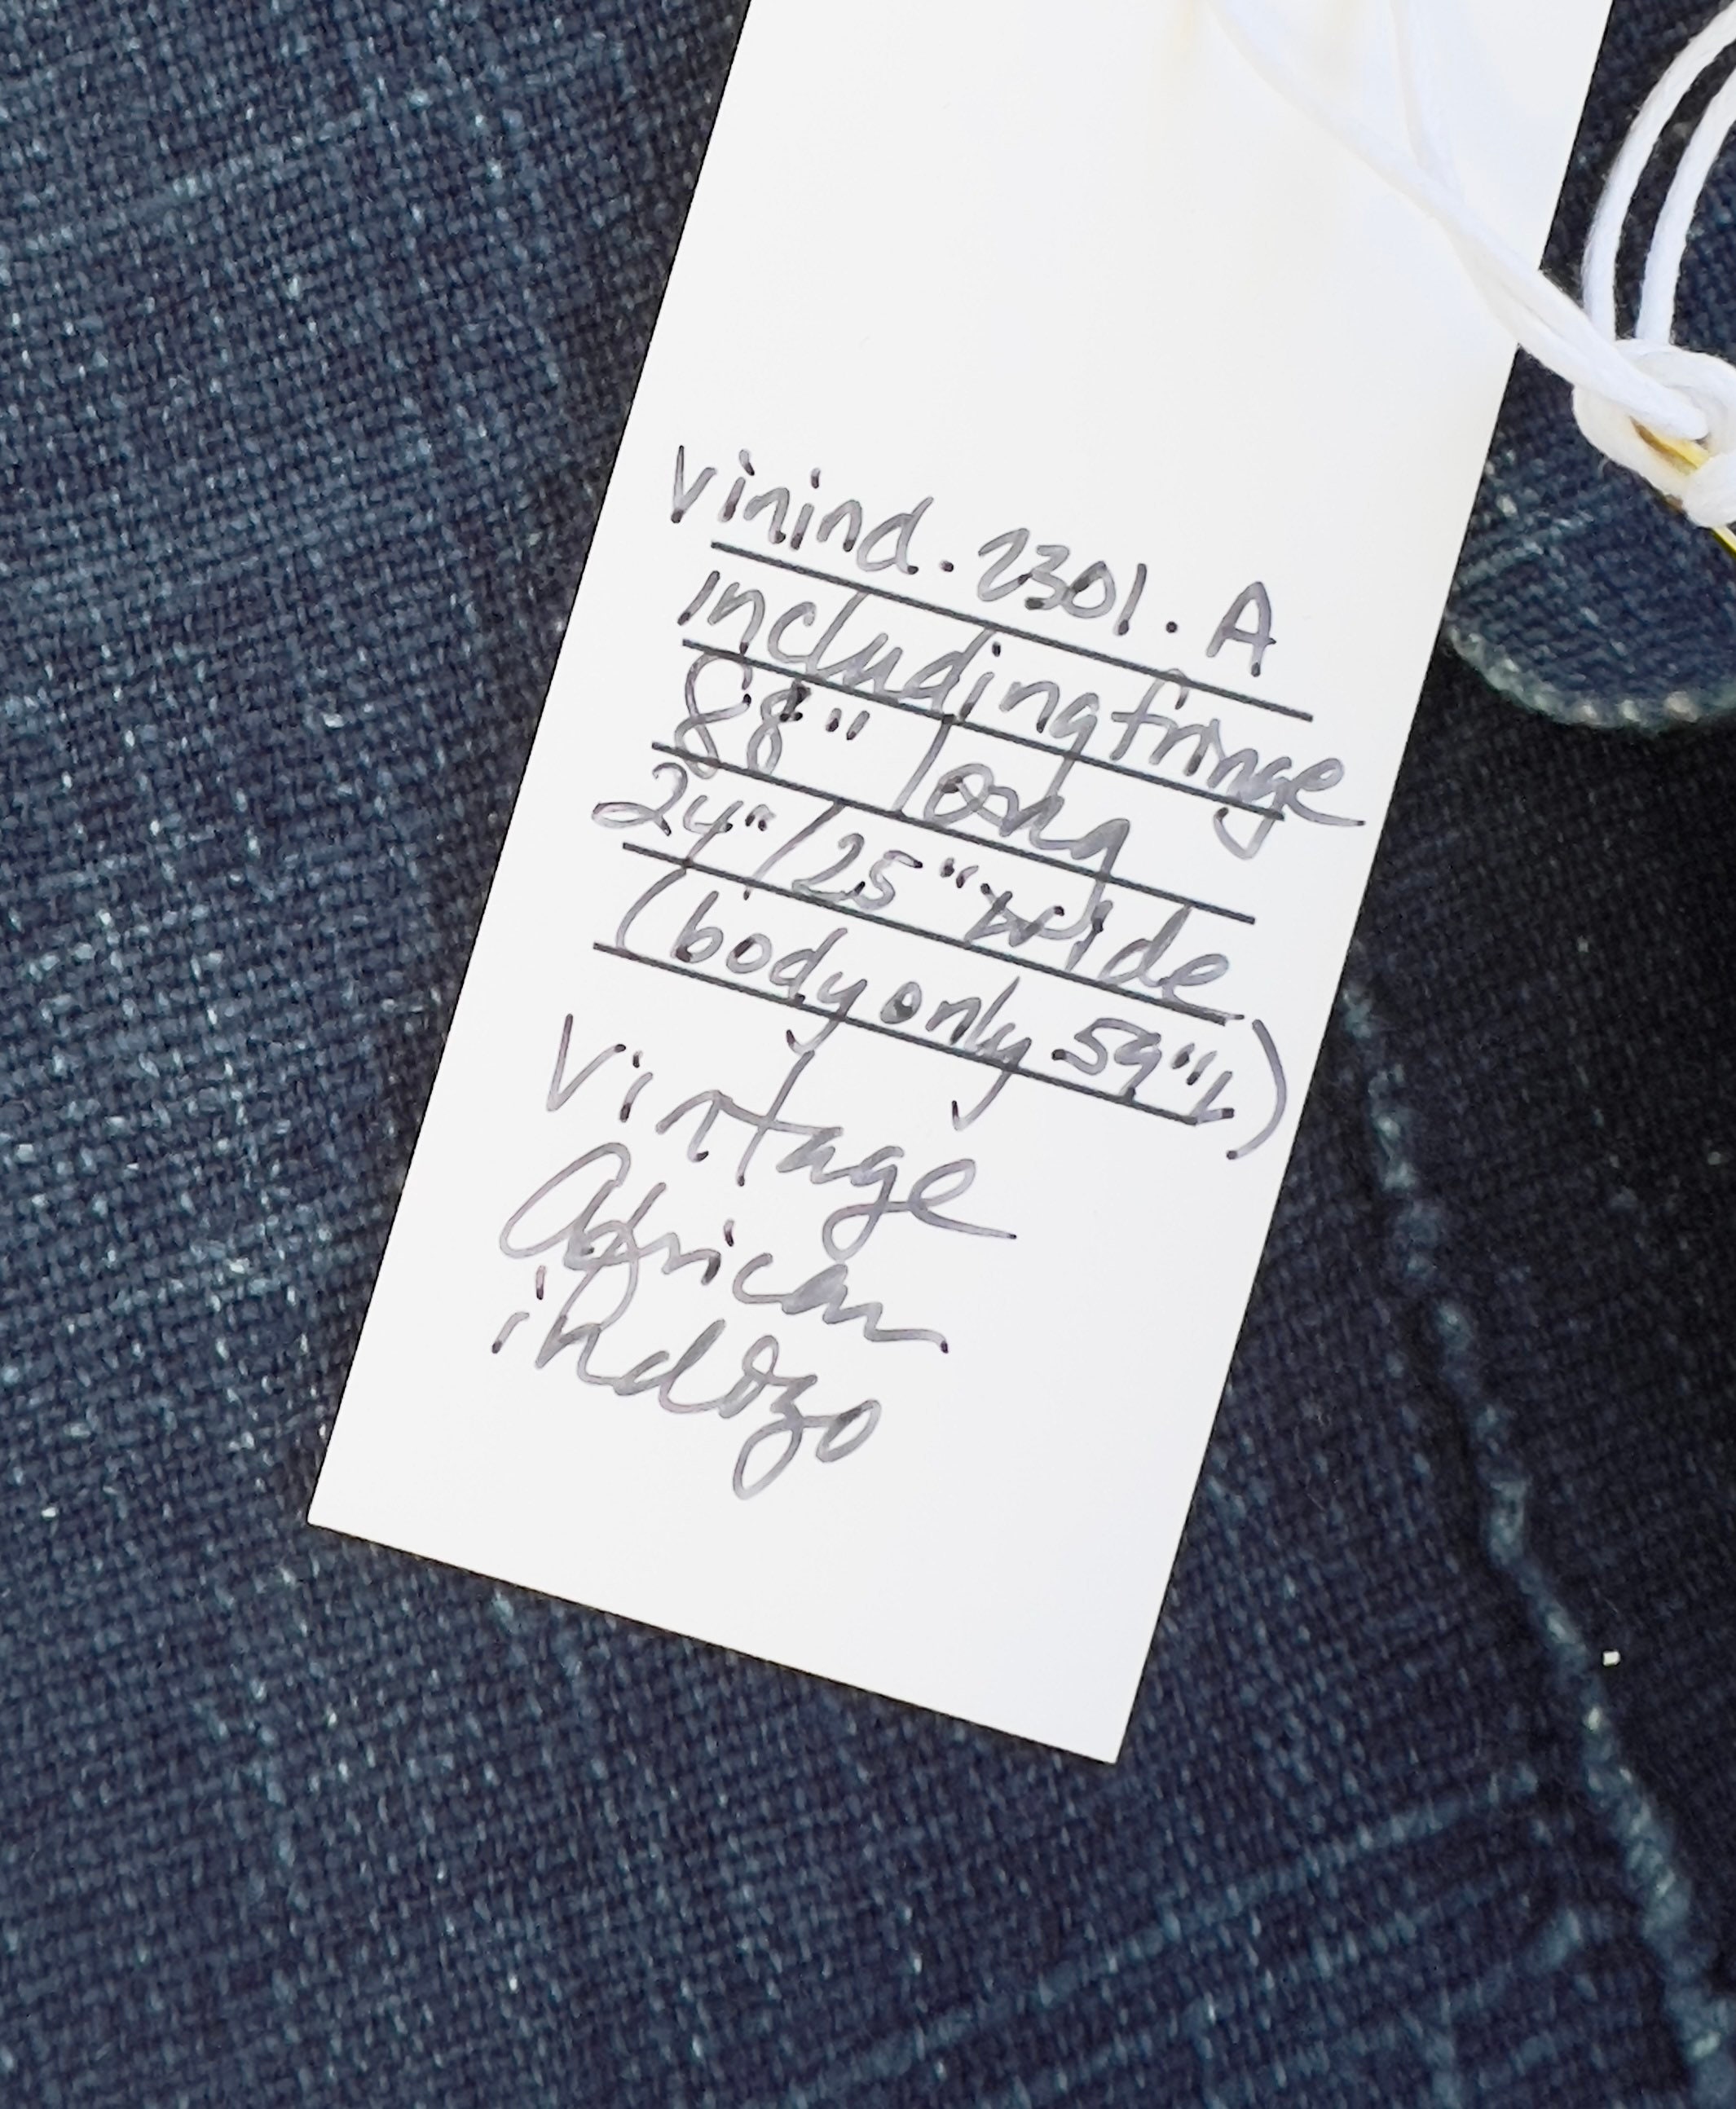 Vinind. 2301. A
including fringe
88" long
24"/25" wide
(body only 59"L)
Vintage
African
indozo